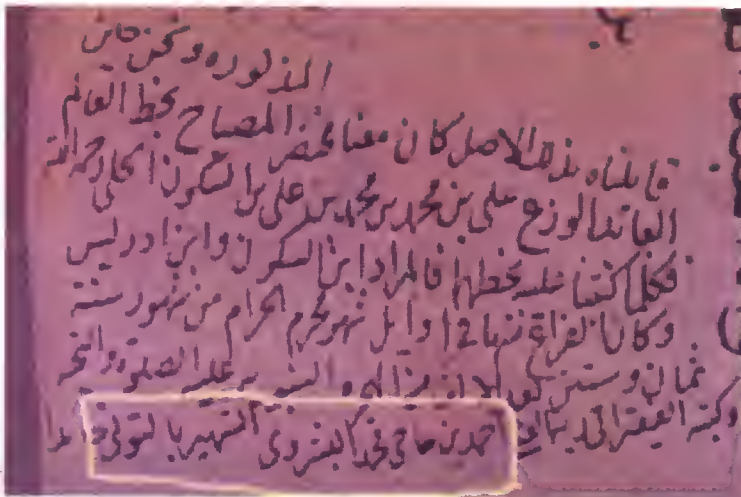 المذكوره ونحن حين
قابلناه بذلك الاصل كان معنا مختصر المصباح بخط العالم
العابد الورع علي بن محمد بن محمد بن علي بن السكون الحلي رحمه الله
فكلما كتبنا عليه بخطهما فالمراد ابن السكون وابن ادريس
وكان الفراغ منها في اوايل شهر محرم الحرام من شهور سنة
ثمان وستين بعد الالف من الهجرة النبوية عليه الصلوة والتحية
وكتبه الفقير الى ربه احمد بن حاجي محمد البشروي الشهير بالتوني حامدا